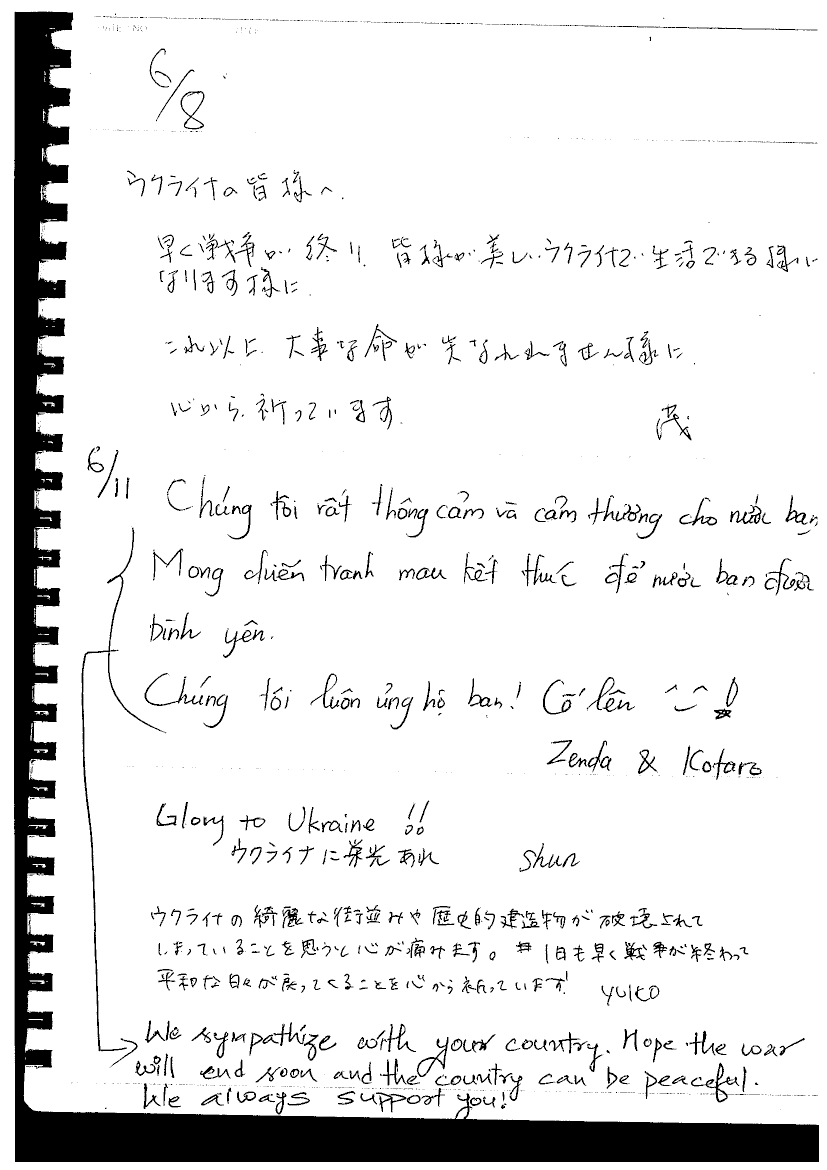 6/8
ウクライナの皆様へ.
早く戦争が終り、皆様が美しいウクライナで生活できる様に
なります様に.
これ以上、大事な命が失なわれません様に.
心から祈っています.
茂
6/11
Chúng tôi rất thông cảm và cảm thương cho nước bạn
Mong chiến tranh mau kết thúc để nước bạn được
bình yên.
Chúng tôi luôn ủng hộ bạn! Cố lên ^‿^!
Zenda & Kotaro
Glory to Ukraine !!
ウクライナに栄光あれ shun
ウクライナの綺麗な街並みや歴史的建造物が破壊されて
しまっていることを思うと心が痛みます。1日も早く戦争が終わって
平和な日々が戻ってくることを心から祈っています! YUIKO
We sympathize with your country. Hope the war
will end soon and the country can be peaceful.
We always support you!